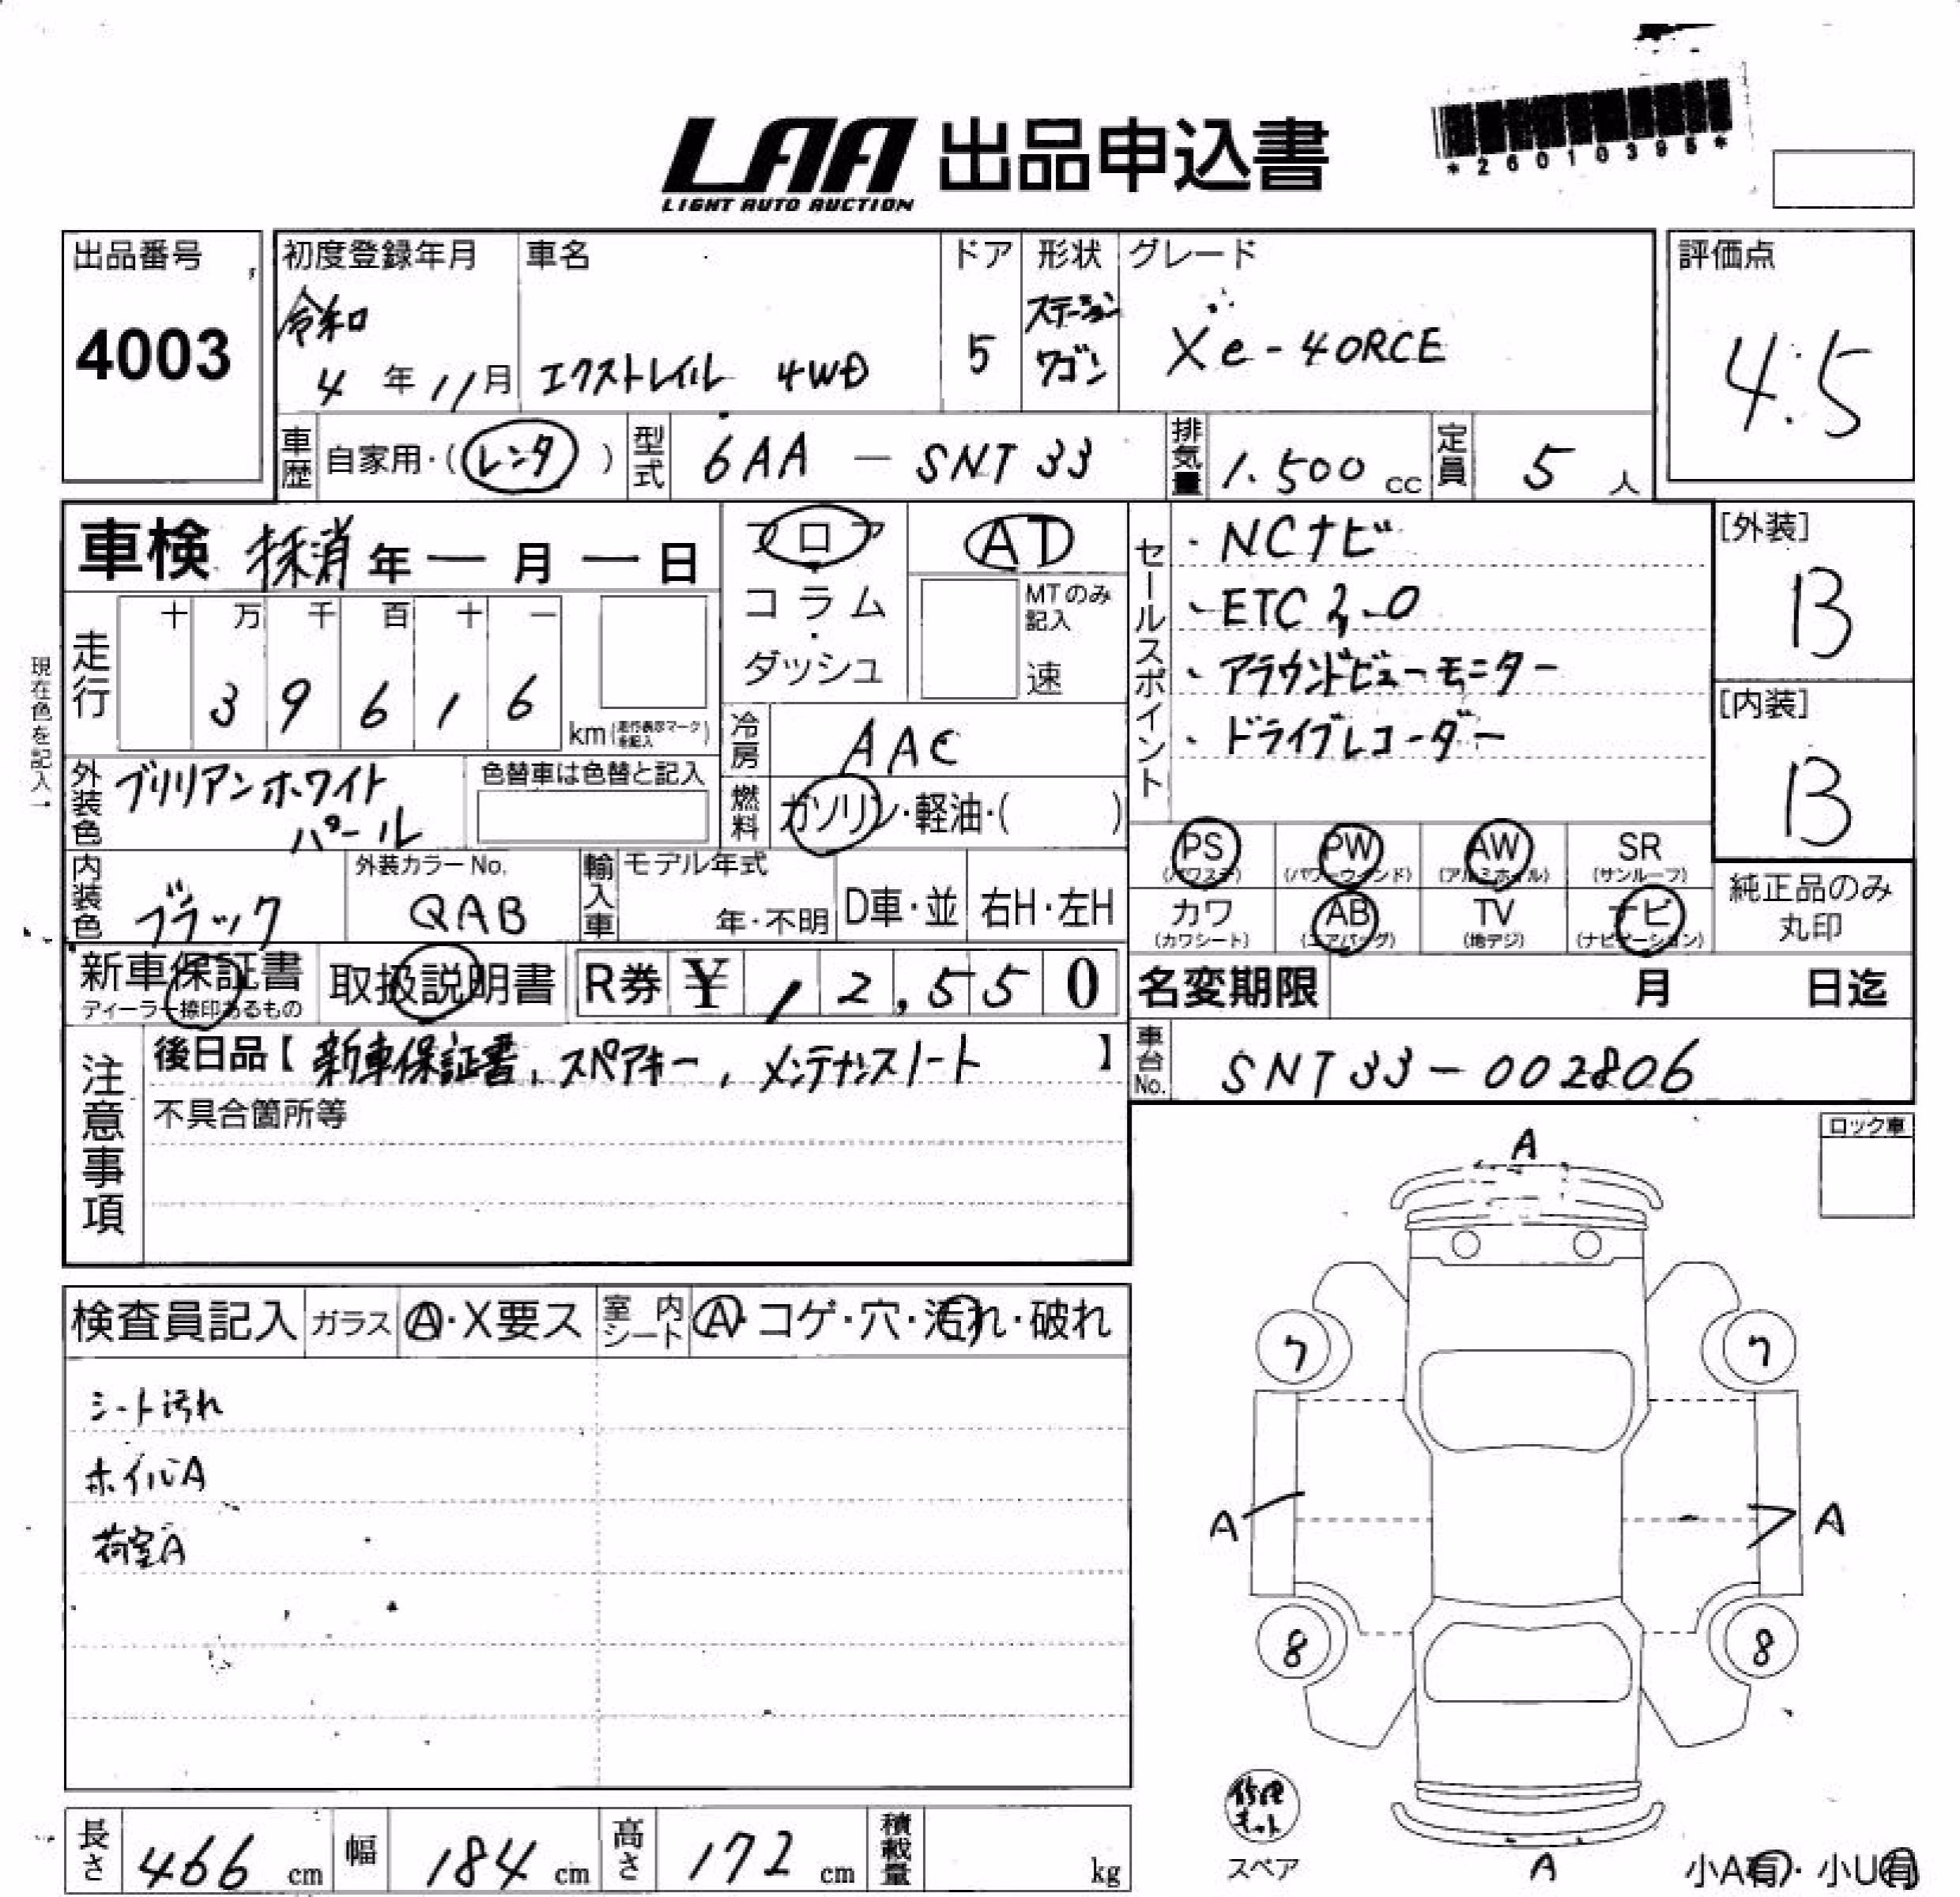 *26010395*
LAA 出品申込書
LIGHT AUTO AUCTION
出品番号
4003
初度登録年月
令和
4年11月
車名
エクストレイル 4WD
ドア
5
形状
ステーション
ワゴン
グレード
Xe-4ORCE
評価点
4.5
車歴 自家用・(レンタ)
型式 6AA - SNT33
排気量 1.500cc
定員 5人
車検 抹消年ー月ー日
フロア
コラム
ダッシュ
AT
MTのみ
記入
速
走行
十 万 千 百 十 一
3 9 6 1 6
km(走行表示マークを記入)
現在色を記入→
外装色 ブリリアンホワイト
パール
色替車は色替と記入
冷房 AAC
燃料 ガソリン・軽油・( )
セールスポイント
・NCナビ
、ETC2.0
、アラウンドビューモニター
、ドライブレコーダー
[外装]
B
[内装]
B
PS PW AW SR
(パワステ) (パワーウィンド) (アルミホイル) (サンルーフ)
カワ AB TV ナビ
(カワシート) (エアバッグ) (地デジ) (ナビゲーション)
純正品のみ
丸印
内装色 ブラック
外装カラーNo.
QAB
輸入車
モデル年式
年・不明
D車・並 右H・左H
新車保証書
ディーラー捺印あるもの
取扱説明書
R券 ¥ 12,550
名変期限 月 日迄
車台No. SNT33-002806
注意事項
後日品【新車保証書、スペアキー、メンテナンスノート】
不具合箇所等
ロック車
検査員記入 ガラス A・X要ス 室内シート A・コゲ・穴・汚れ・破れ
シート汚れ
ホイルA
荷室A
A
7 7
A A
8 8
修理
キット
スペア
A
小A有・小U有
長さ 466cm
幅 184cm
高さ 172cm
積載量 kg